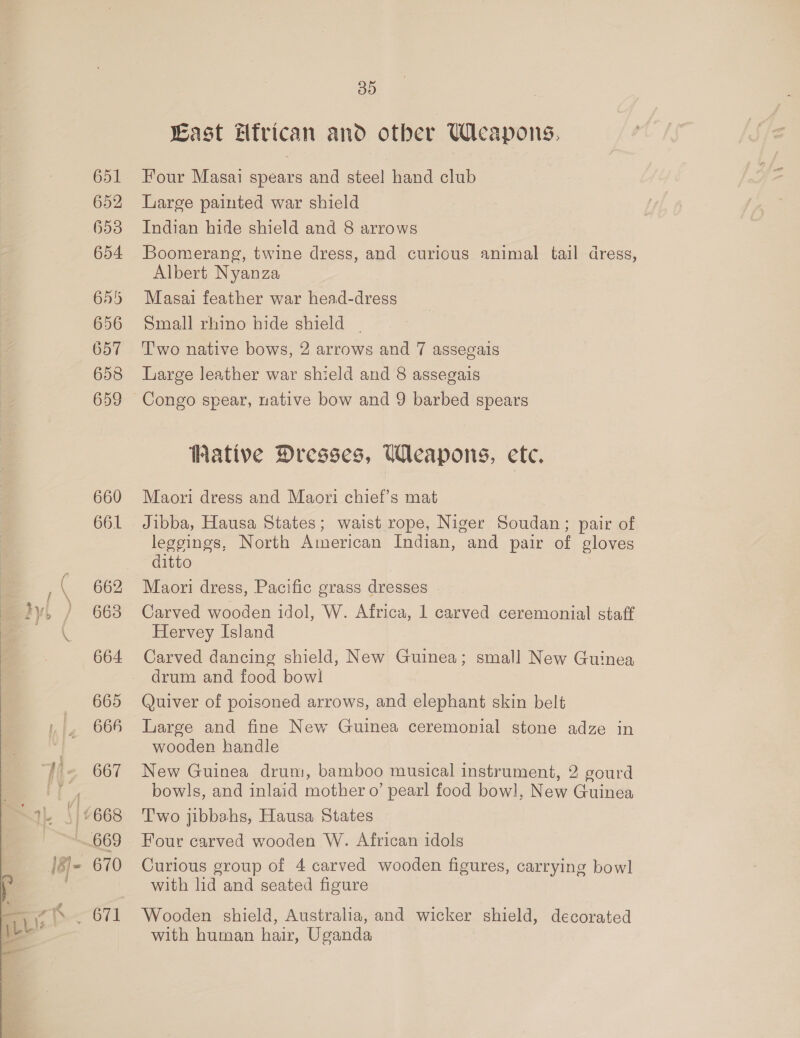 35
East African and other Weapons.
651 Four Masai spears and steel hand club
652 Large painted war shield
653 Indian hide shield and 8 arrows
654 Boomerang, twine dress, and curious animal tail dress,
Albert Nyanza
655 Masai feather war head-dress
656 Small rhino hide shield
657 Two native bows, 2 arrows and 7 assegais
658 Large leather war shield and 8 assegais
659 Congo spear, native bow and 9 barbed spears
Native Dresses, Weapons, etc.
660 Maori dress and Maori chief's mat
661 Jibba, Hausa States; waist rope, Niger Soudan; pair of
leggings, North American Indian, and pair of gloves
ditto
662 Maori dress, Pacific grass dresses
663 Carved wooden idol, W. Africa, 1 carved ceremonial staff
Hervey Island
664 Carved dancing shield, New Guinea; small New Guinea
drum and food bowl
665 Quiver of poisoned arrows, and elephant skin belt
666 Large and fine New Guinea ceremonial stone adze in
wooden handle
667 New Guinea drum, bamboo musical instrument, 2 gourd
bowls, and inlaid mother o' pearl food bowl, New Guinea
668 Two jibbahs, Hausa States
669 Four carved wooden W. African idols
670 Curious group of 4 carved wooden figures, carrying bowl
with lid and seated figure
671 Wooden shield, Australia, and wicker shield, decorated
with human hair, Uganda